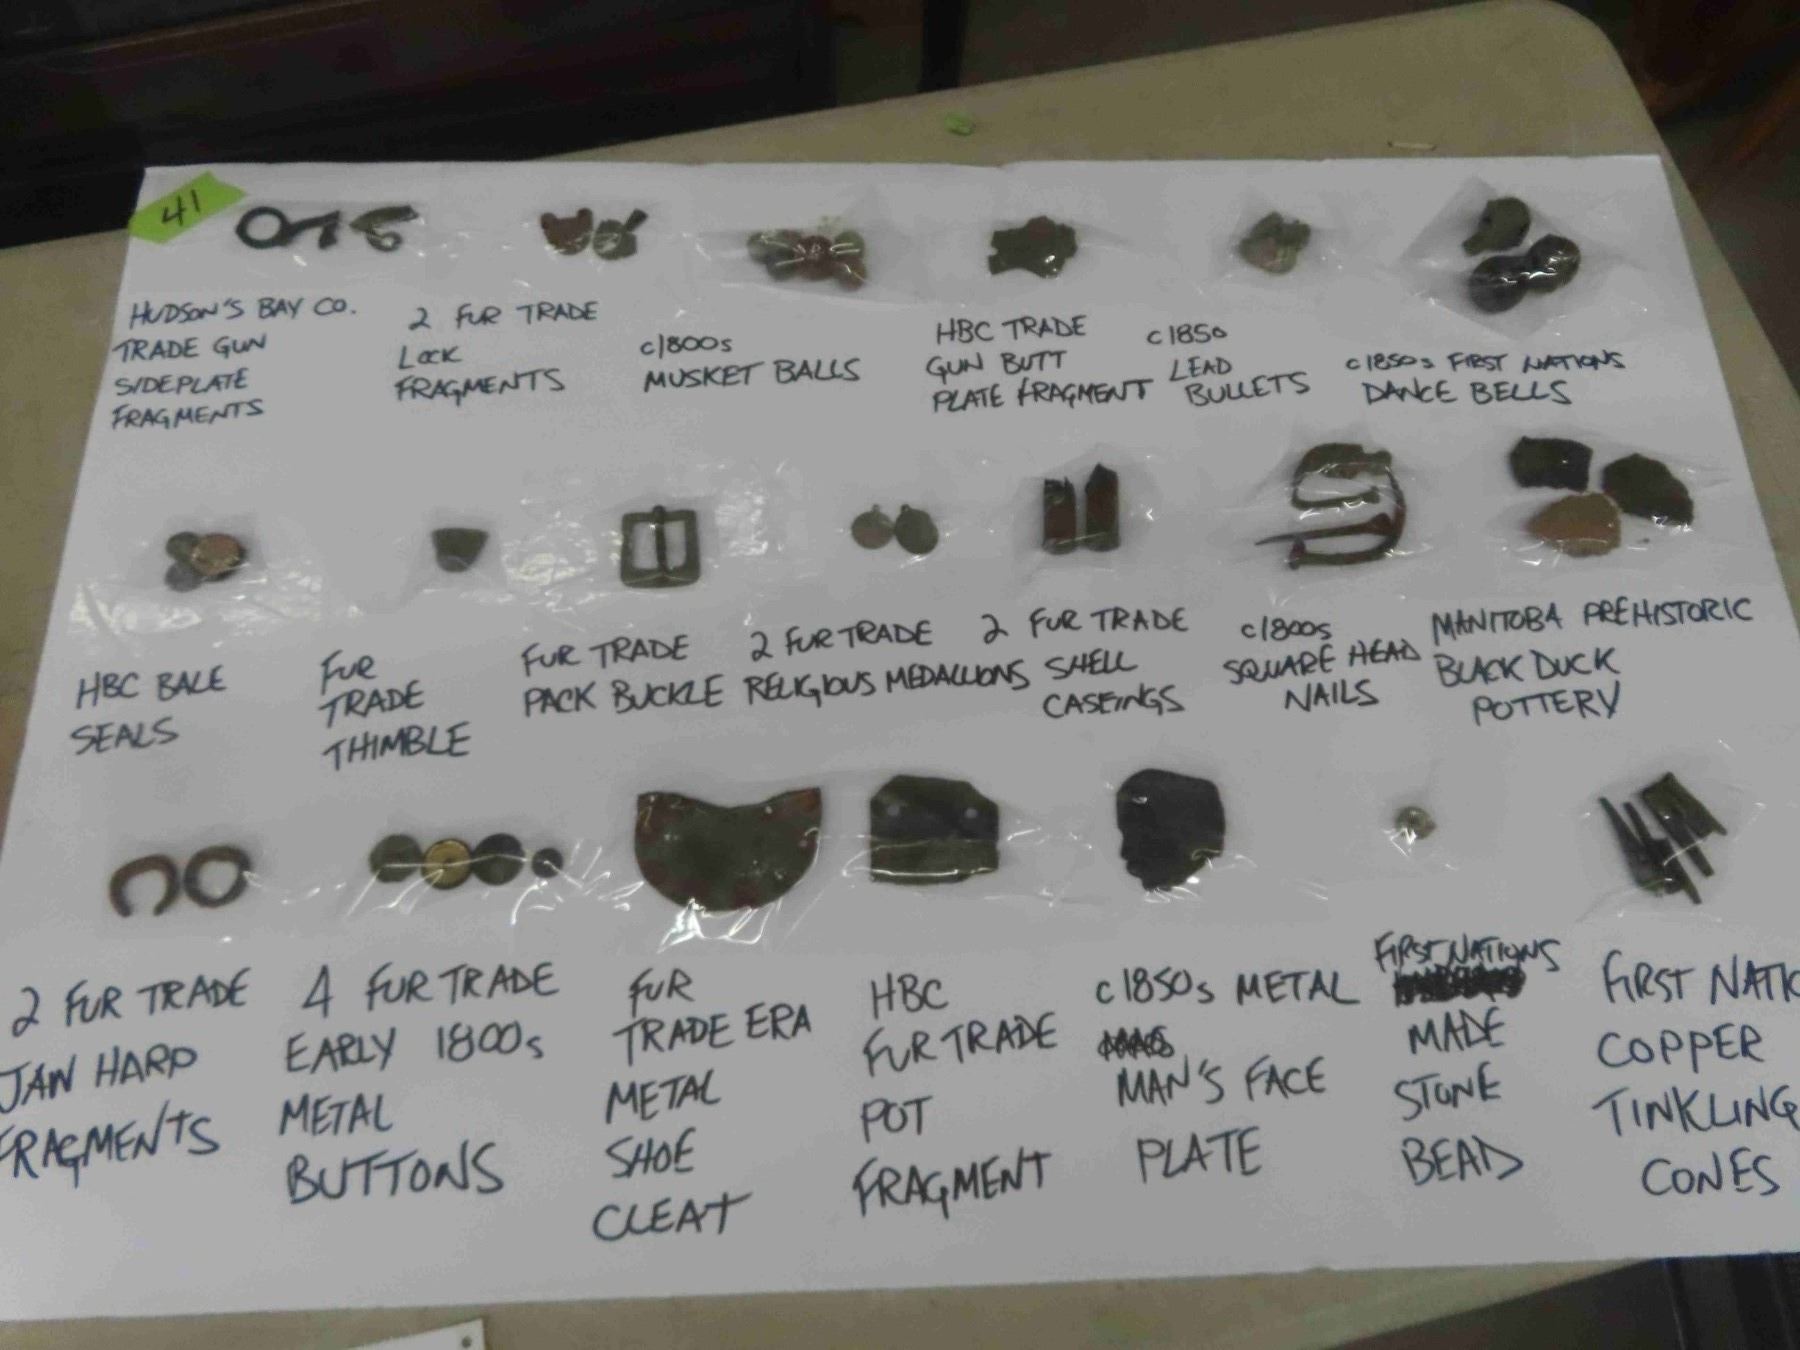 41
HUDSON'S BAY CO.
TRADE GUN
SIDEPLATE
FRAGMENTS
2 FUR TRADE
LOCK
FRAGMENTS
c1800s
MUSKET BALLS
HBC TRADE
GUN BUTT
PLATE FRAGMENT
c1850
LEAD
BULLETS
c1850s FIRST NATIONS
DANCE BELLS
HBC BALE
SEALS
FUR
TRADE
THIMBLE
FUR TRADE
PACK BUCKLE
2 FUR TRADE
RELIGIOUS MEDALLIONS
2 FUR TRADE
SHELL
CASEINGS
c1800s
SQUARE HEAD
NAILS
MANITOBA PREHISTORIC
BLACK DUCK
POTTERY
2 FUR TRADE
JAW HARP
FRAGMENTS
4 FUR TRADE
EARLY 1800s
METAL
BUTTONS
FUR
TRADE ERA
METAL
SHOE
CLEAT
HBC
FUR TRADE
POT
FRAGMENT
c1850s METAL
MAN'S FACE
PLATE
FIRST NATIONS
MADE
STONE
BEAD
FIRST NATIO
COPPER
TINKLING
CONES